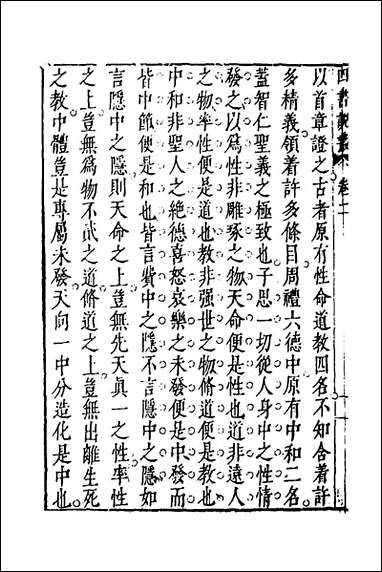 四書說叢 卷二
以首章證之古者原有性命道教四名不知含着許
多精義領着許多條目周禮六德中原有中和二名
蓋智仁聖義之極致也子思一切從人身中之性情
發之以爲性非雕琢之物天命便是性也道非遠人
之物率性便是道也教非强世之物脩道便是教也
中和非聖人之絶德喜怒哀樂之未發便是中發而
皆中節便是和也皆言費中之隱不言隱中之隱如
言隱中之隱則天命之上豈無先天真一之性率性
之上豈無爲物不貮之道脩道之上豈無出離生死
之教中體豈是專屬未發天向一中分造化是中也